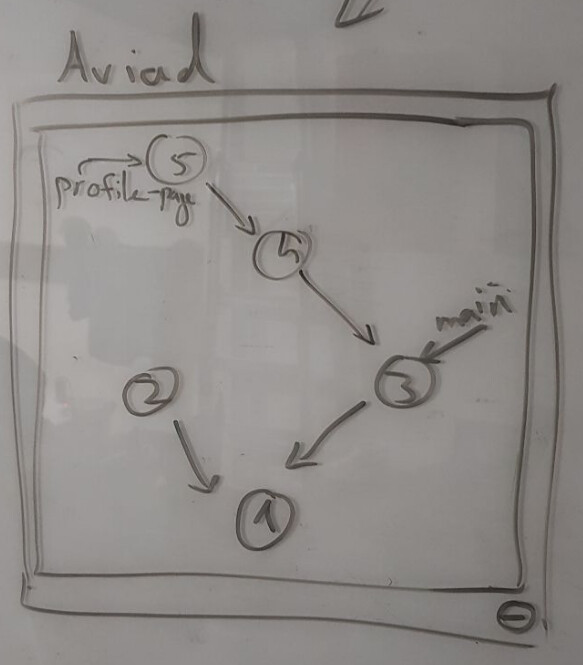 Aviad
5
profile-page
4
main
2
3
1